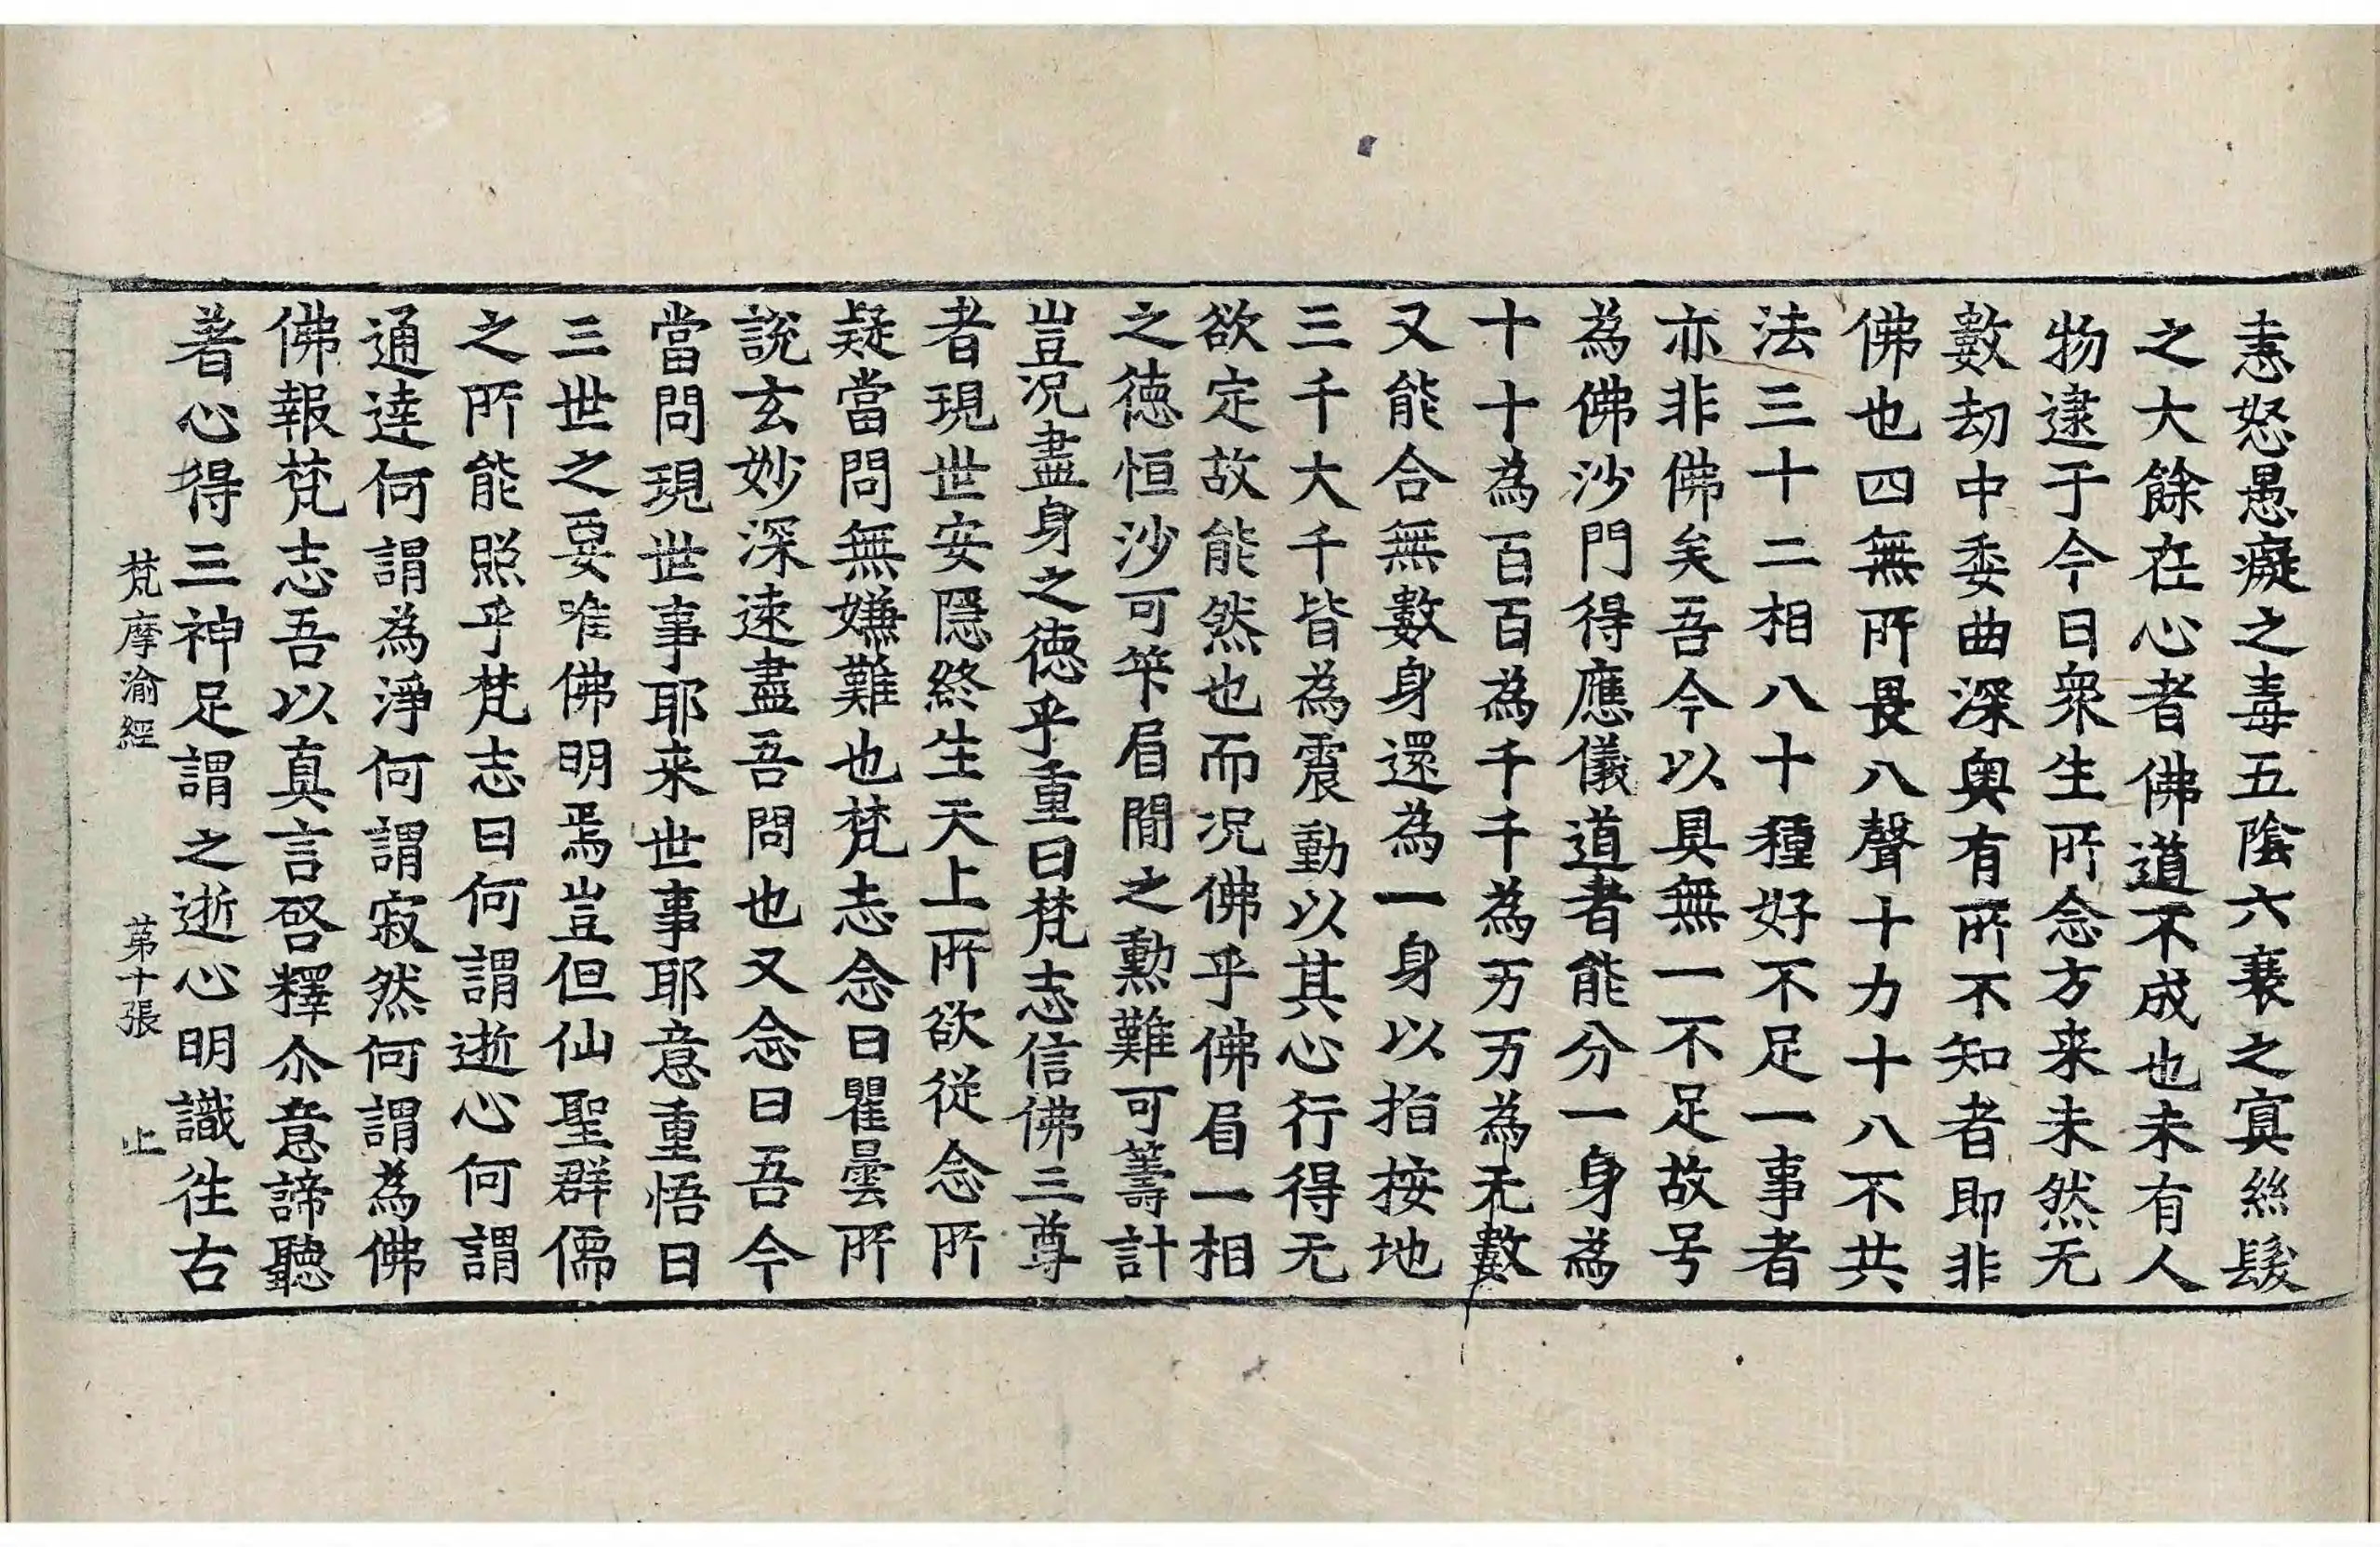 恚怒愚癡之毒五陰六衰之㝠絲髮
之大餘在心者佛道不成也未有人
物逮于今日眾生所念方来未然无
數劫中委曲深奥有所不知者即非
佛也四無所畏八聲十力十八不共
法三十二相八十種好不足一事者
亦非佛矣吾今以具無一不足故号
為佛沙門得應儀道者能分一身為
十十為百百為千千為万万為无數
又能合無數身還為一身以指按地
三千大千皆為震動以其心行得无
欲定故能然也而况佛乎佛眉一相
之徳恒沙可筭眉間之勲難可籌計
豈况盡身之徳乎重曰梵志信佛三尊
者現世安隱終生天上所欲從念所
疑當問無嫌難也梵志念曰瞿曇所
說玄妙深逺盡吾問也又念曰吾今
當問現世事耶来世事耶意重悟曰
三世之要唯佛明焉豈但仙聖群儒
之所能照乎梵志曰何謂逝心何謂
通達何謂為淨何謂寂然何謂為佛
佛報梵志吾以真言啓釋尒意諦聽
著心得三神足謂之逝心明識徃古
梵摩渝經 苐十張 止